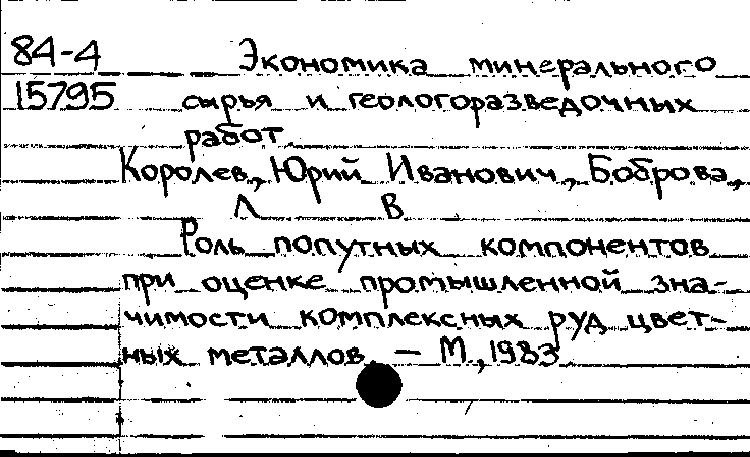 84-4 Экономика минерального
15795 сырья и геологоразведочных
работ.
Королев, Юрий Иванович, Боброва,
Л В
Роль попутных компонентов
при оценке промышленной зна-
чимости комплексных руд цвет-
ных металлов. — М., 1983